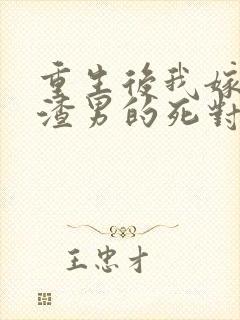 重生後我嫁
渣男的死對
王忠才